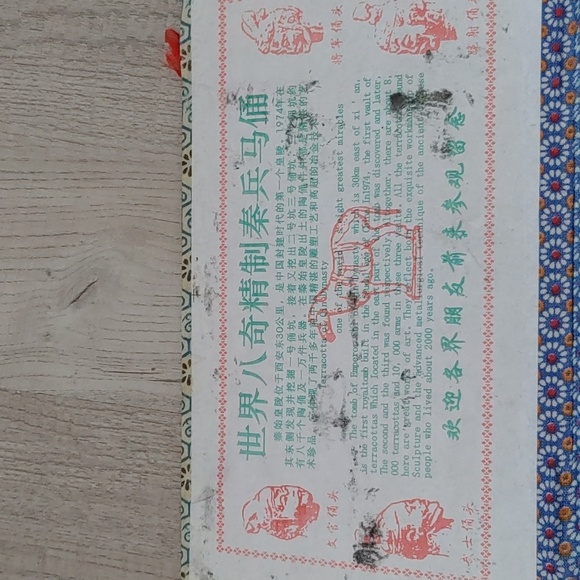 世界八奇精制秦兵马俑
秦始皇陵位于西安东30公里,是中国封建时代的第一个皇陵,1974年在
其东侧发现并挖掘一号俑坑,接着又挖出二号坑三号俑坑
有八千个陶俑及一万件兵器,在秦始皇陵出土的陶俑件件都是
术珍品,了两千多年中国精湛的雕塑工艺和高超的冶金技
Terracottas of Qin dynasty
one of the world eight greatest mirables
The tomb of Emperor of Qin dynasty which is 30km east of xi'an,
is the first royaltomb built in the age of China. In1974, the first vault of
Terracottas Which located in the east part of the tomb was discovered, and later,
The second and the third was found respectively. Altogether, there are about 8,
000 terracottas and 10,000 arms in these three vaults. All the terracottas and
here are great works of art. They reflect both the exquisite workmanship of
Sculpture and the advanced metallurgical technique of the ancient Chinese
people who lived about 2000 years ago.
欢迎各界朋友前来参观留念
将军俑头
文官俑头
武士俑头